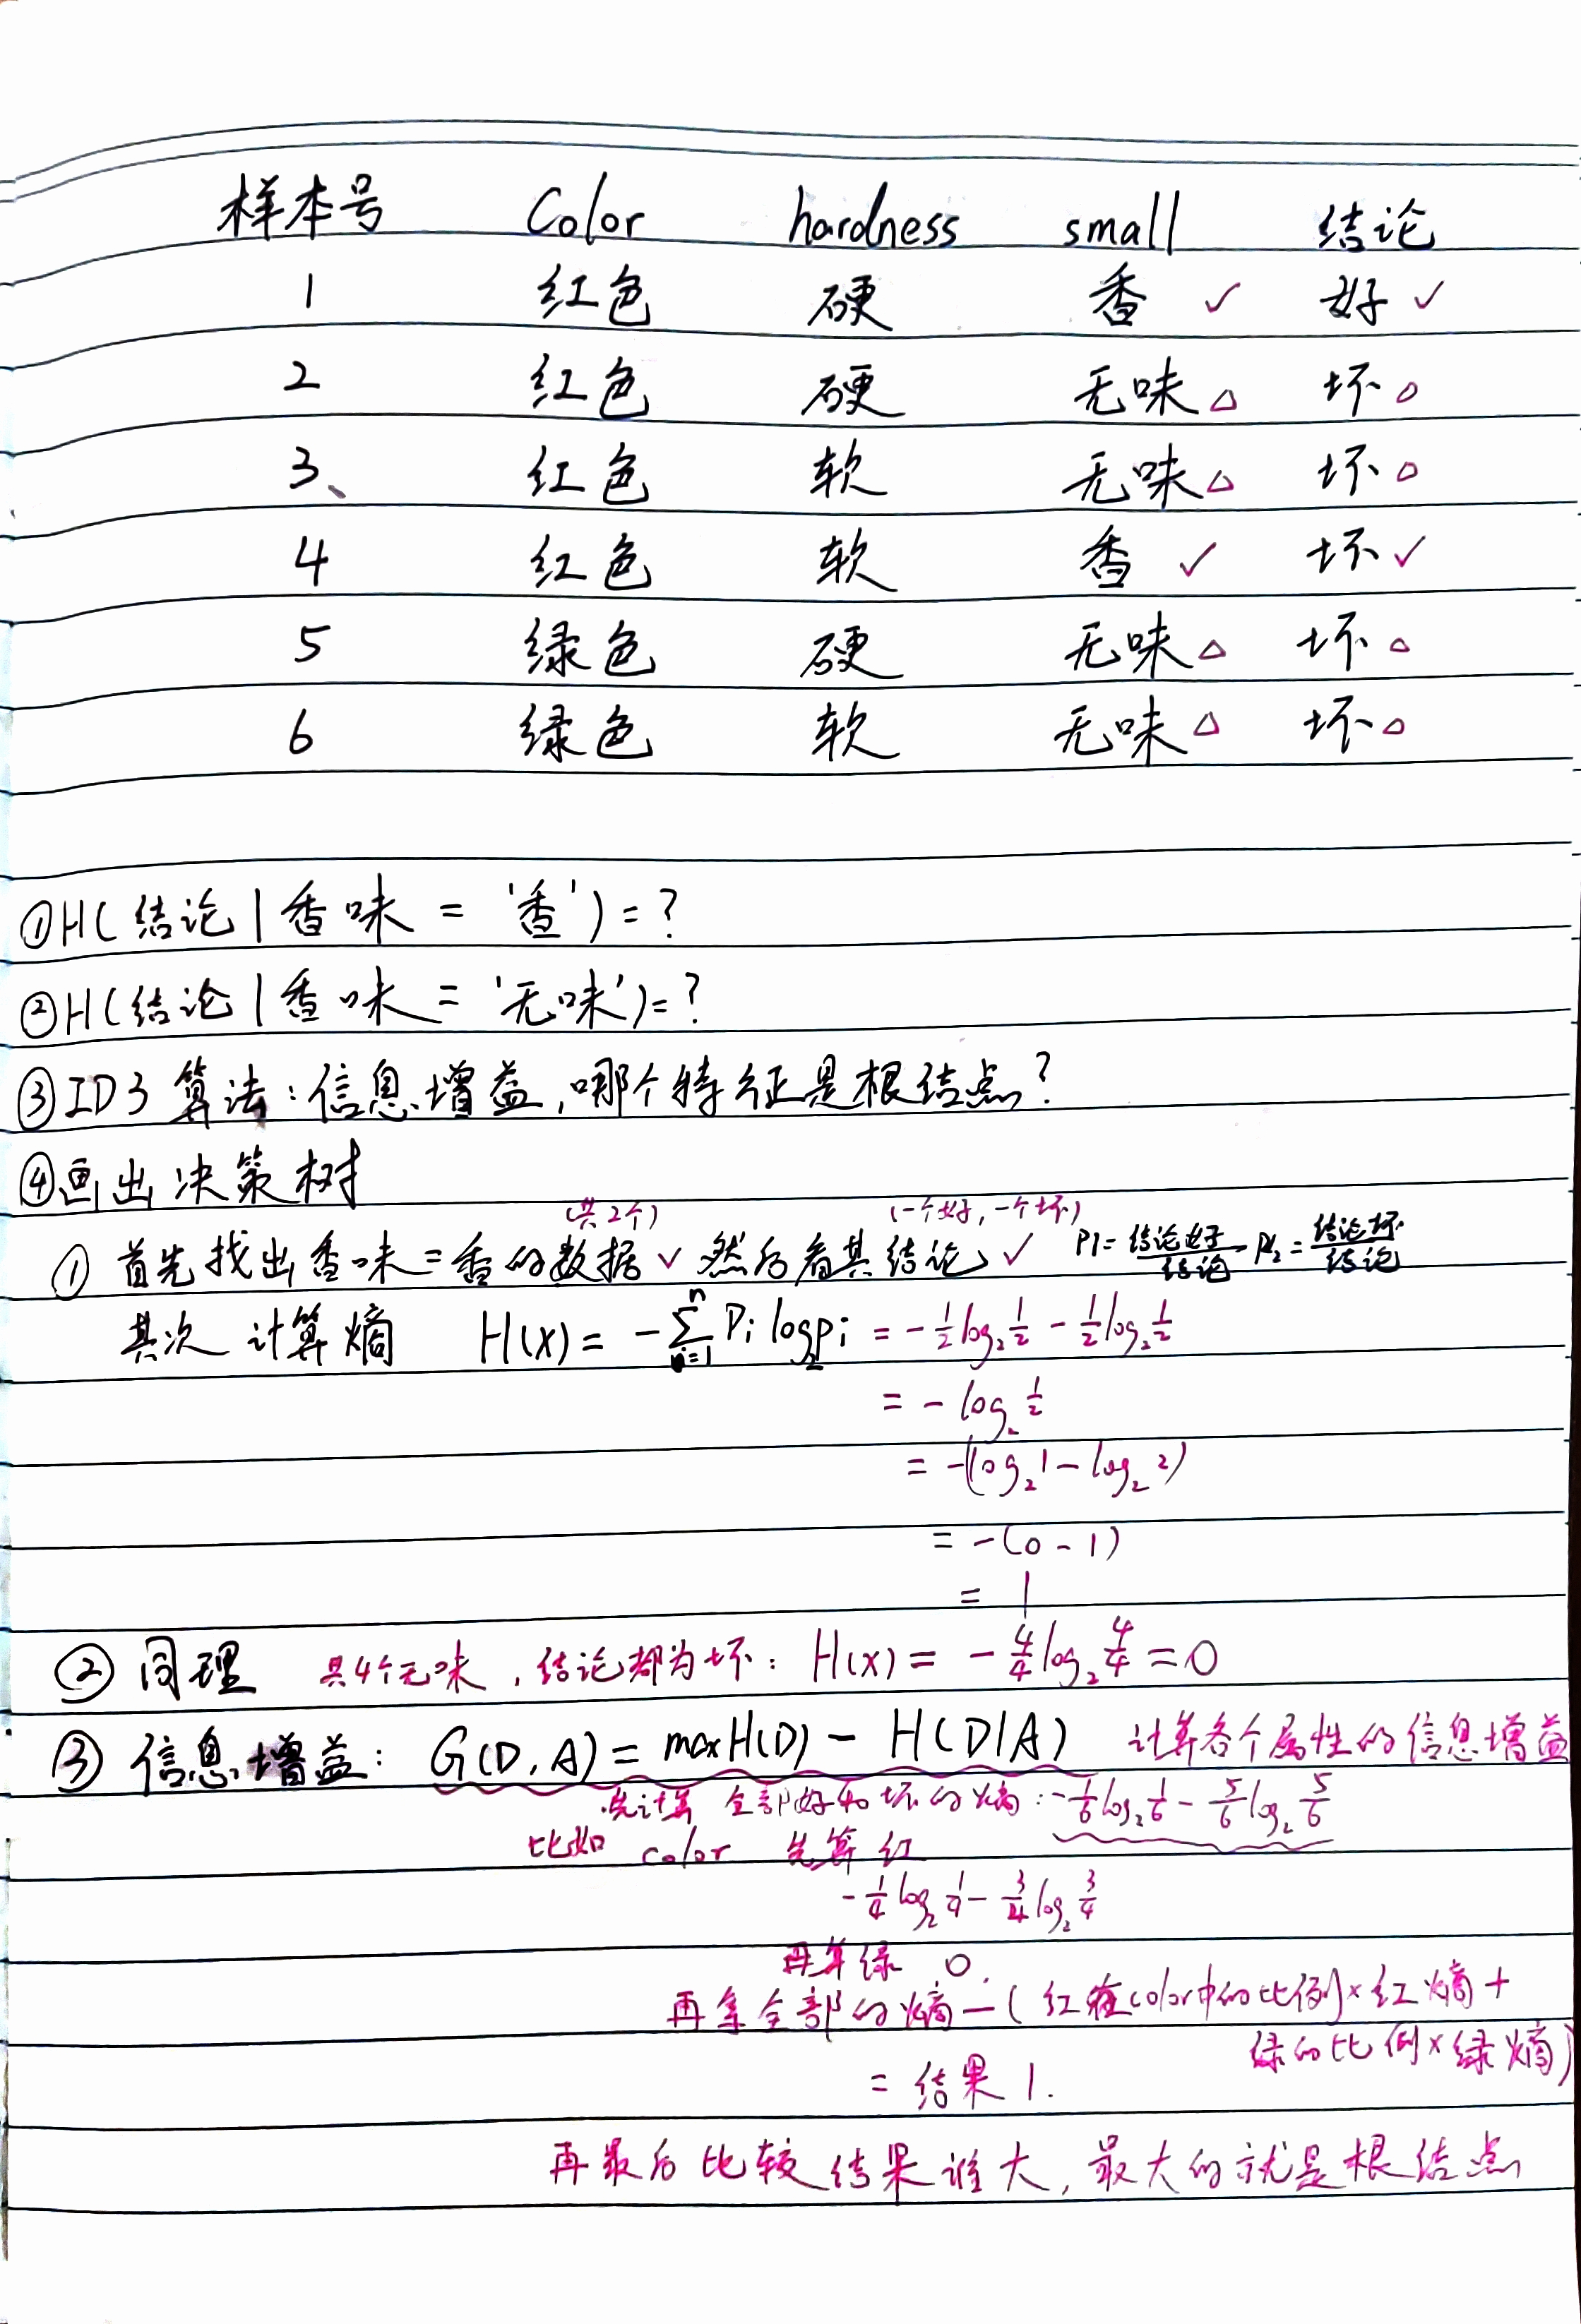 样本号 Color hardness small 结论
1 红色 硬 香 ✓ 好 ✓
2 红色 硬 无味 △ 坏 △
3、 红色 软 无味 △ 坏 △
4 红色 软 香 ✓ 坏 ✓
5 绿色 硬 无味 △ 坏 △
6 绿色 软 无味 △ 坏 △
①H(结论|香味='香')=?
②H(结论|香味='无味')=?
③ID3算法:信息增益,哪个特征是根结点?
④画出决策树
(共2个) (一个好,一个坏)
①首先找出香味=香的数据✓然后看其结论✓ P1=结论好/结论 P2=结论坏/结论
其次 计算熵 H(X)=-∑ⁿₙ₌₁ Pi log₂pi = -1/2 log₂ 1/2 - 1/2 log₂ 1/2
= -log₂ 1/2
= -(log₂1-log₂2)
= -(0-1)
= 1
②同理 共4个无味,结论都为坏: H(x)= -4/4 log₂ 4/4 =0
③信息增益: G(D,A)=maxH(D)-H(D|A) 计算各个属性的信息增益
先计算 全部好和坏的熵: -1/6 log₂ 1/6 - 5/6 log₂ 5/6
比如 color 先算红
-1/4 log₂ 1/4 - 3/4 log₂ 3/4
再算绿 0.
再拿全部的熵-(红在color中的比例×红熵+
绿的比例×绿熵)
= 结果1.
再最后比较结果谁大,最大的就是根结点